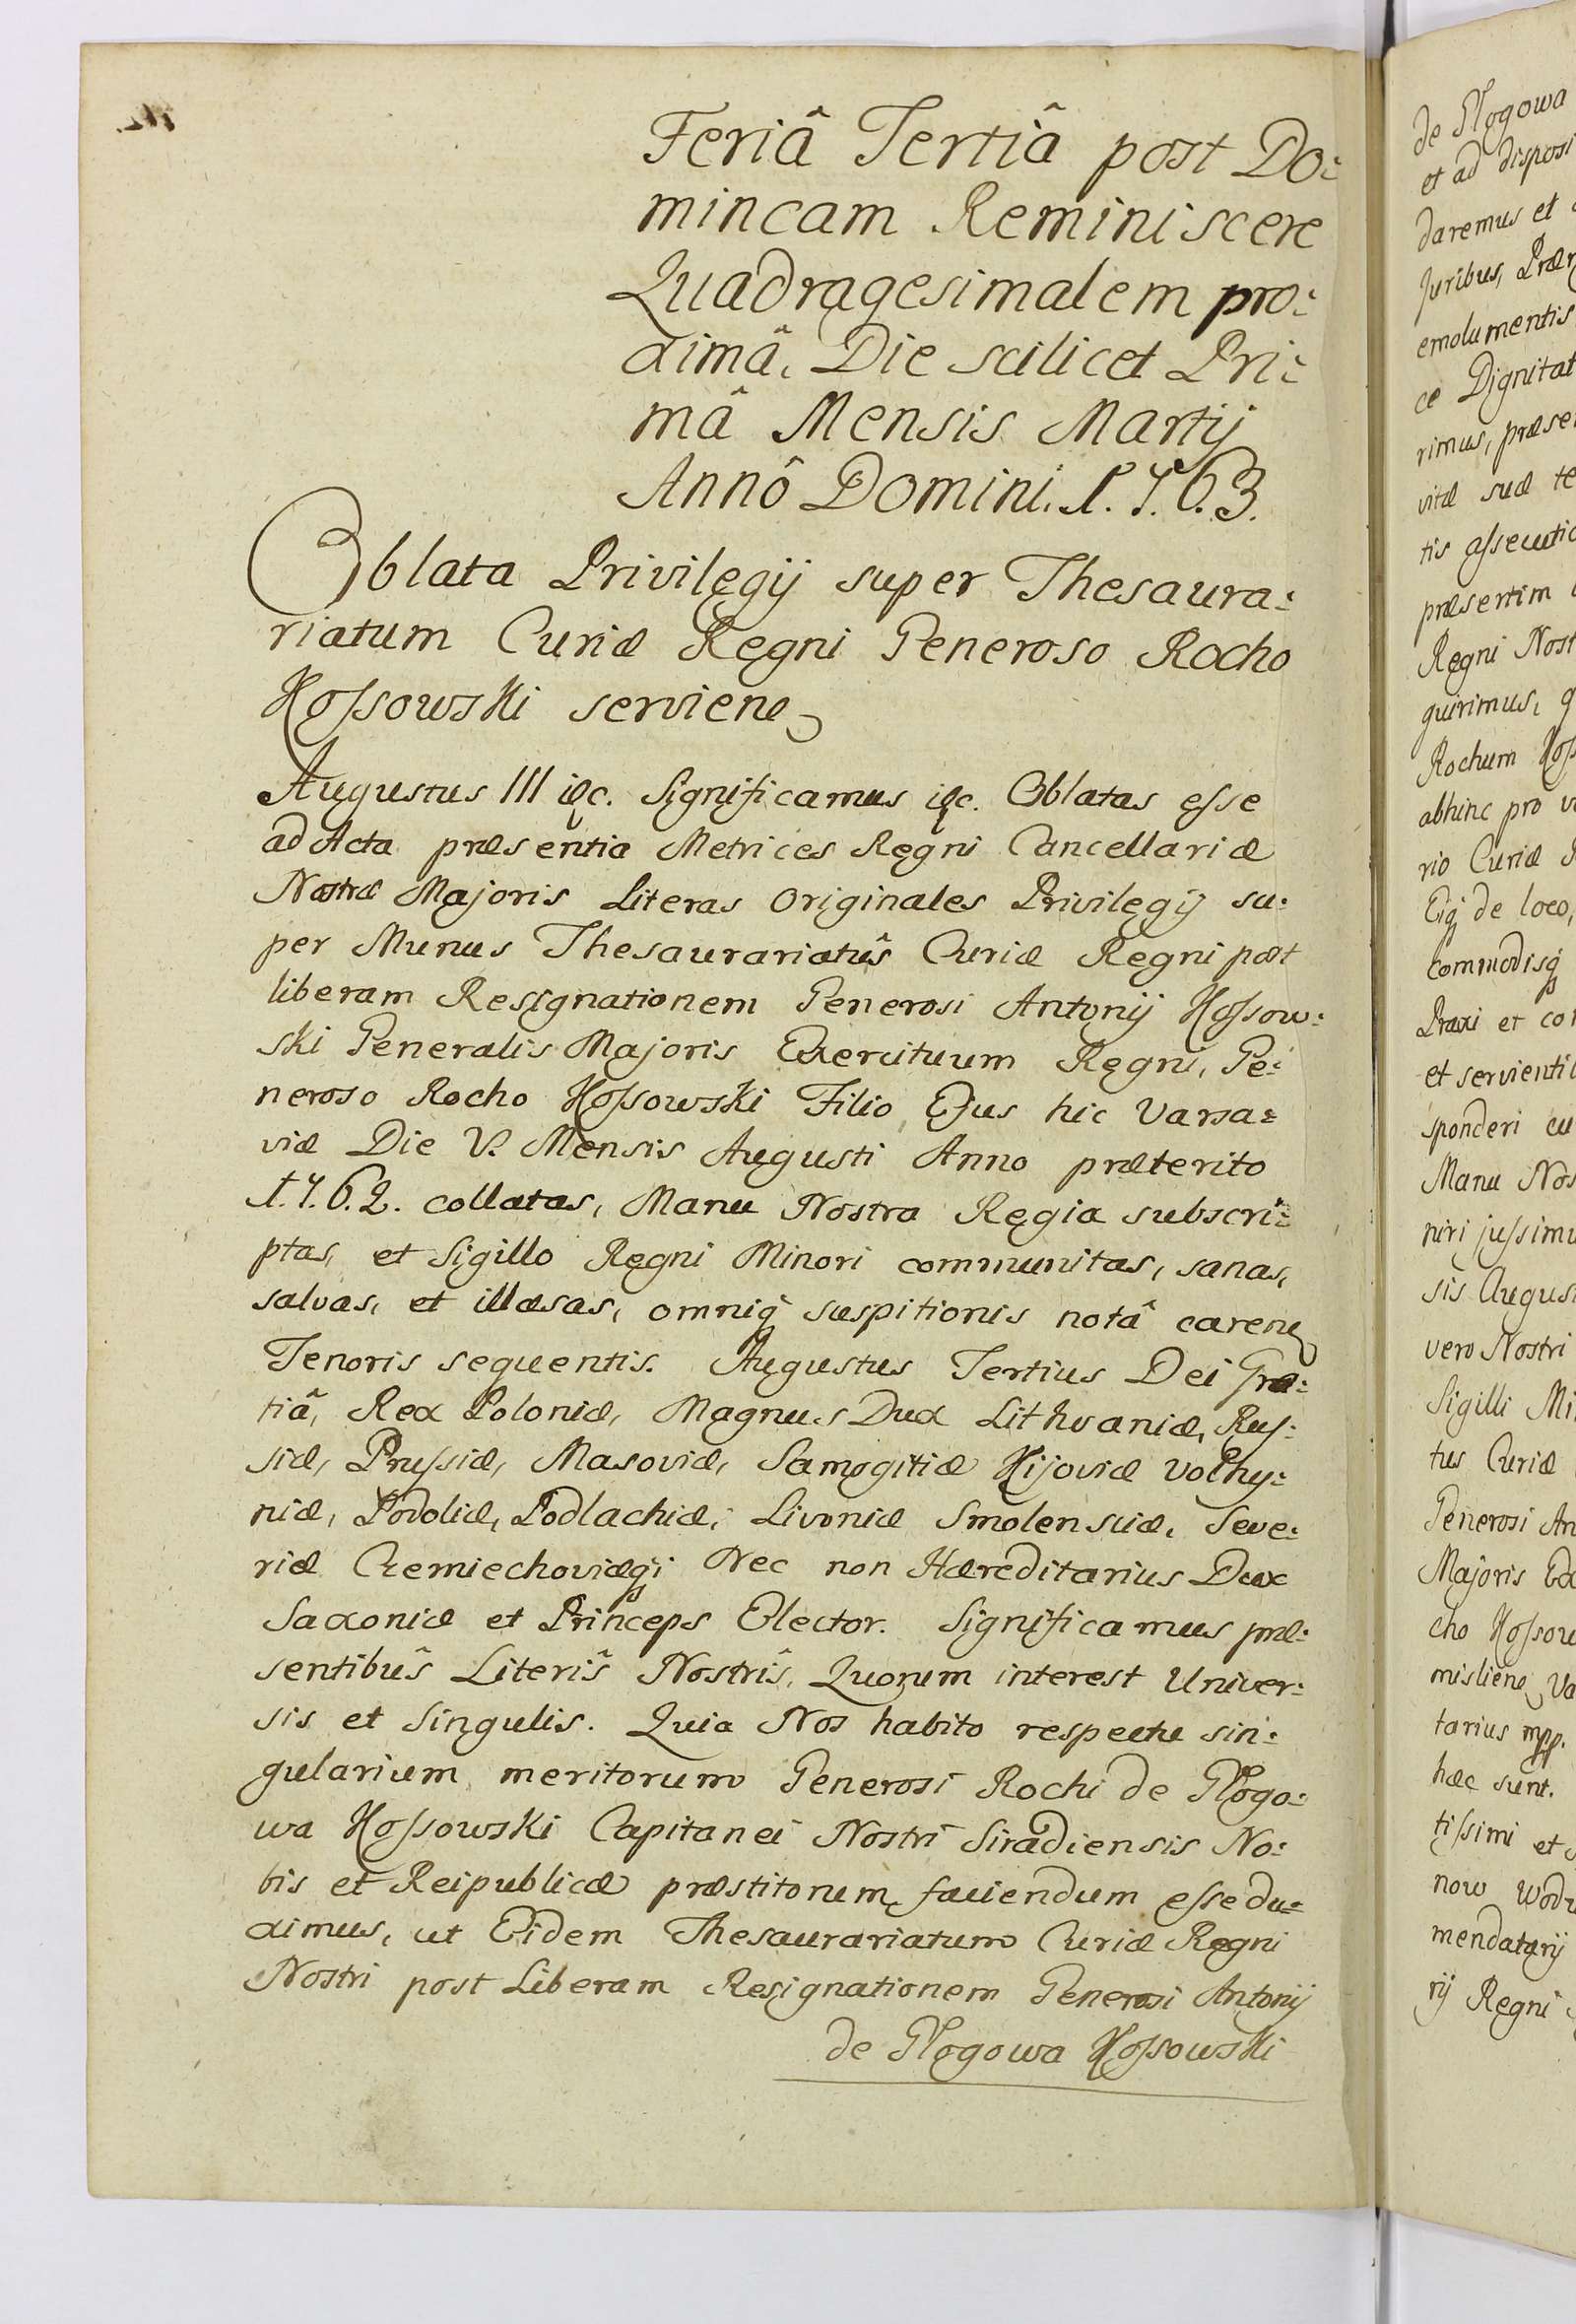 Feriâ Tertiâ post Do:
mincam Reminiscere
Quadragesimalem pro:
ximâ, Die scilicet Pri:
mâ Mensis Martij
Annô Domini. 1.7.6.3.
Oblata Privilegij super Thesaura:
riatum Curiæ Regni Generoso Rocho
Kossowski serviens
Augustus III etc. Significamus etc. Oblatas esse
ad Acta præsentia Metrices Regni Cancellariæ
Nostræ Majoris Literas Originales Privilegij su:
per Munus Thesaurariatûs Curiæ Regni post
liberam Resignationem Generosi Antonij Kossow:
ski Generalis Majoris Exercituum Regni, Ge:
neroso Rocho Kossowski Filio Ejus hic Varsa:
viæ Die V. Mensis Augusti Anno præterito
1.7.6.2. collatas, Manu Nostra Regia subscri:
ptas, et Sigillo Regni Minori communitas, sanas,
salvas, et illæsas, omniq̃ suspitionis notâ caren
Tenoris sequentis. Augustus Tertius Dei Gra:
tiâ, Rex Poloniæ, Magnus Dux Lithvaniæ, Rus:
siæ, Prussiæ, Masoviæ, Samogitiæ Kijoviæ Volhy:
niæ, Podoliæ, Podlachiæ, Livoniæ Smolensciæ, Seve:
riæ Czerniechoviæq; Nec non Hæreditarius Dux
Saxoniæ et Princeps Elector. Significamus præ:
sentibûs Literîs Nostrîs, Quorum interest Univer:
sis et Singulis. Quia Nos habito respectu sin:
gularium meritorum Generosi Rochi de Głogo:
wa Kossowski Capitanei Nostri Siradiensis No:
bis et Reipublicæ præstitorum, faciendum esse du:
ximus, ut Eidem Thesaurariatum Curiæ Regni
Nostri post Liberam Resignationem Generosi Antonij
de Głogowa Kossowski
de Głogowa
et ad disposi
daremus et
Juribus, Prær
emolumentis
ce Dignitat
rimus, præse
vitæ suæ te
tis assecutio
præsertim
Regni Nost
quirimus, q
Rochum Kos
abhinc pro v
rio Curiæ R
Eiq; de loco,
commodisq;
Praxi et co
et servienti
sponderi cu
Manu Nos
niri jussimu
sis Augus
vero Nostri
Sigilli Mi
tus Curiæ
Generosi An
Majoris Ex
cho Kossow
mislien Va
tarius mpp.
hæc sunt.
tissimi et
now Wodz
mendatarij
rij Regni